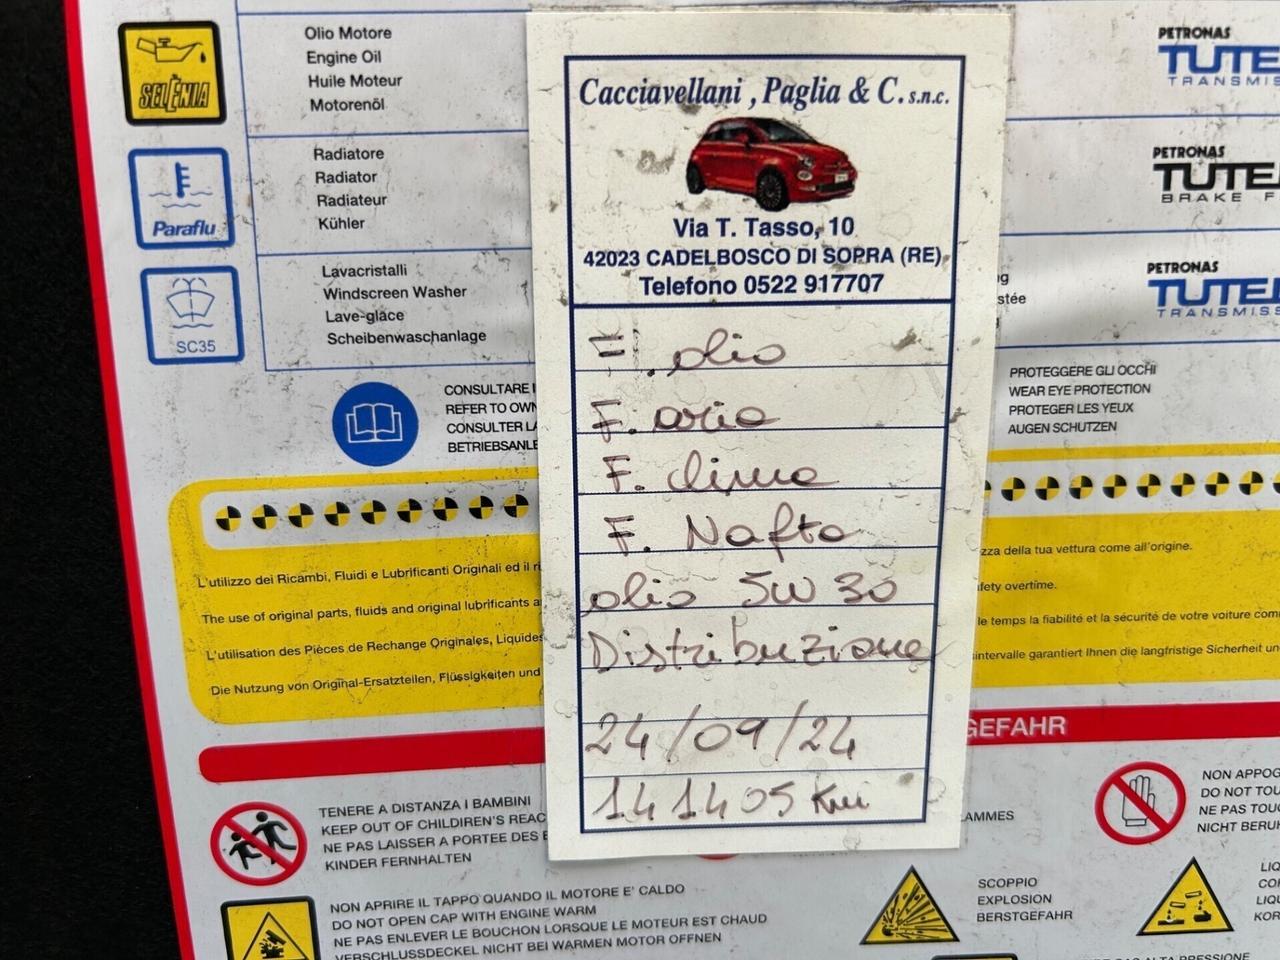 SELÈNIA
Olio Motore
Engine Oil
Huile Moteur
Motorenöl
Paraflu
Radiatore
Radiator
Radiateur
Kühler
SC35
Lavacristalli
Windscreen Washer
Lave-glace
Scheibenwaschanlage
CONSULTARE
REFER TO OWN
CONSULTER LA
BETRIEBSANLE
Cacciavellani, Paglia & C. s.n.c.
Via T. Tasso, 10
42023 CADELBOSCO DI SOPRA (RE)
Telefono 0522 917707
F. olio
F. aria
F. clima
F. Nafta
olio 5W 30
Distribuzione
24/09/24
141405 Km
PETRONAS
TUTE
TRANSMIS
PETRONAS
TUTE
BRAKE F
PETRONAS
TUTE
TRANSMIS
PROTEGGERE GLI OCCHI
WEAR EYE PROTECTION
PROTEGER LES YEUX
AUGEN SCHUTZEN
L'utilizzo dei Ricambi, Fluidi e Lubrificanti Originali ed il
zza della tua vettura come all'origine.
The use of original parts, fluids and original lubrificants
fety overtime.
L'utilisation des Pièces de Rechange Originales, Liquides
le temps la fiabilité et la sécurité de votre voiture com
Die Nutzung von Original-Ersatzteilen, Flüssigkeiten und
intervalle garantiert Ihnen die langfristige Sicherheit un
GEFAHR
TENERE A DISTANZA I BAMBINI
KEEP OUT OF CHILDREN'S REAC
NE PAS LAISSER A PORTEE DES
KINDER FERNHALTEN
AMMES
NON APPOG
DO NOT TOU
NE PAS TOUC
NICHT BERU
NON APRIRE IL TAPPO QUANDO IL MOTORE E' CALDO
DO NOT OPEN CAP WITH ENGINE WARM
NE PAS ENLEVER LE BOUCHON LORSQUE LE MOTEUR EST CHAUD
VERSCHLUSSDECKEL NICHT BEI WARMEN MOTOR OFFNEN
SCOPPIO
EXPLOSION
BERSTGEFAHR
LIQ
COR
LIQU
KOR